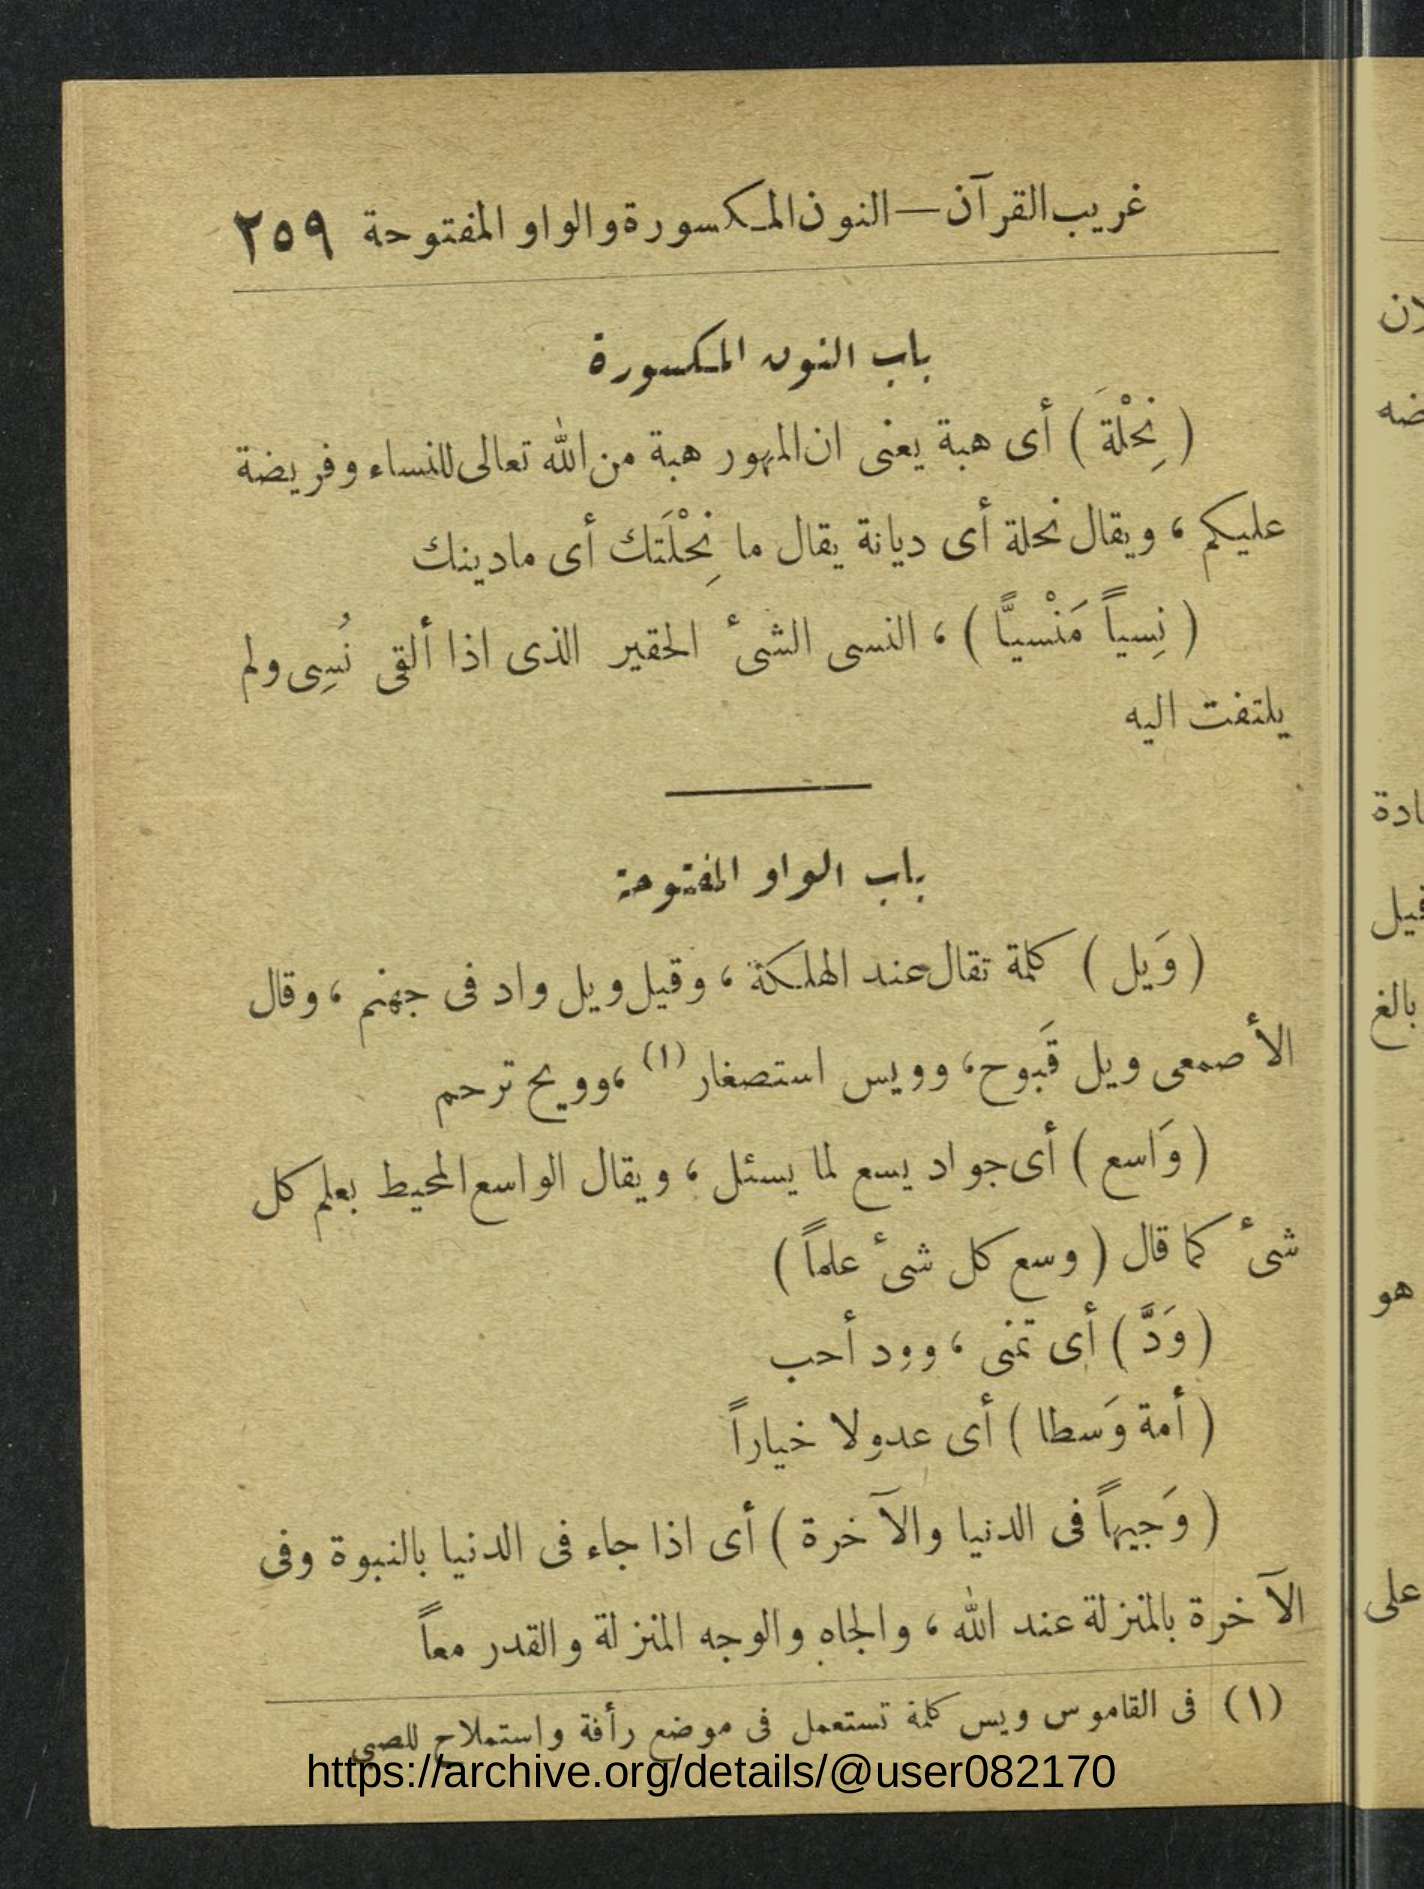 غريب القرآن — النون المكسورة والواو المفتوحة ٢٥٩
باب النون المكسورة
( نِحْلةَ ) أى هبة يعنى ان المهور هبة من الله تعالى للنساء وفريضة
عليكم ، ويقال نحلة أى ديانة يقال ما نِحْلَتك أى مادينك
( نِسياً مَنْسيًّا ) ، النسى الشىٔ الحقير الذى اذا ألقى نُسِى ولم
يلتفت اليه
باب الواو المفتوحة
( وَيل ) كلمة تقال عند الهلكة ، وقيل ويل واد فى جهنم ، وقال
الأصمعى ويل قَبوح ، وويس استصغار (١) ، وويح ترحم
( وَاسع ) أى جواد يسع لما يسئل ، ويقال الواسع المحيط بعلم كل
شىٔ كما قال ( وسع كل شىٔ علماً )
( وَدَّ ) أى تمنى ، وود أحب
( أمة وَسطا ) أى عدولا خياراً
( وَجيهاً فى الدنيا والآخرة ) أى اذا جاء فى الدنيا بالنبوة وفى
الآخرة بالمنزلة عند الله ، والجاه والوجه المنزلة والقدر معاً
(١) فى القاموس ويس كلمة تستعمل فى موضع رأفة واستملاح للصبي
https://archive.org/details/@user082170
ان
ضه
ادة
فيل
بالغ
هو
على